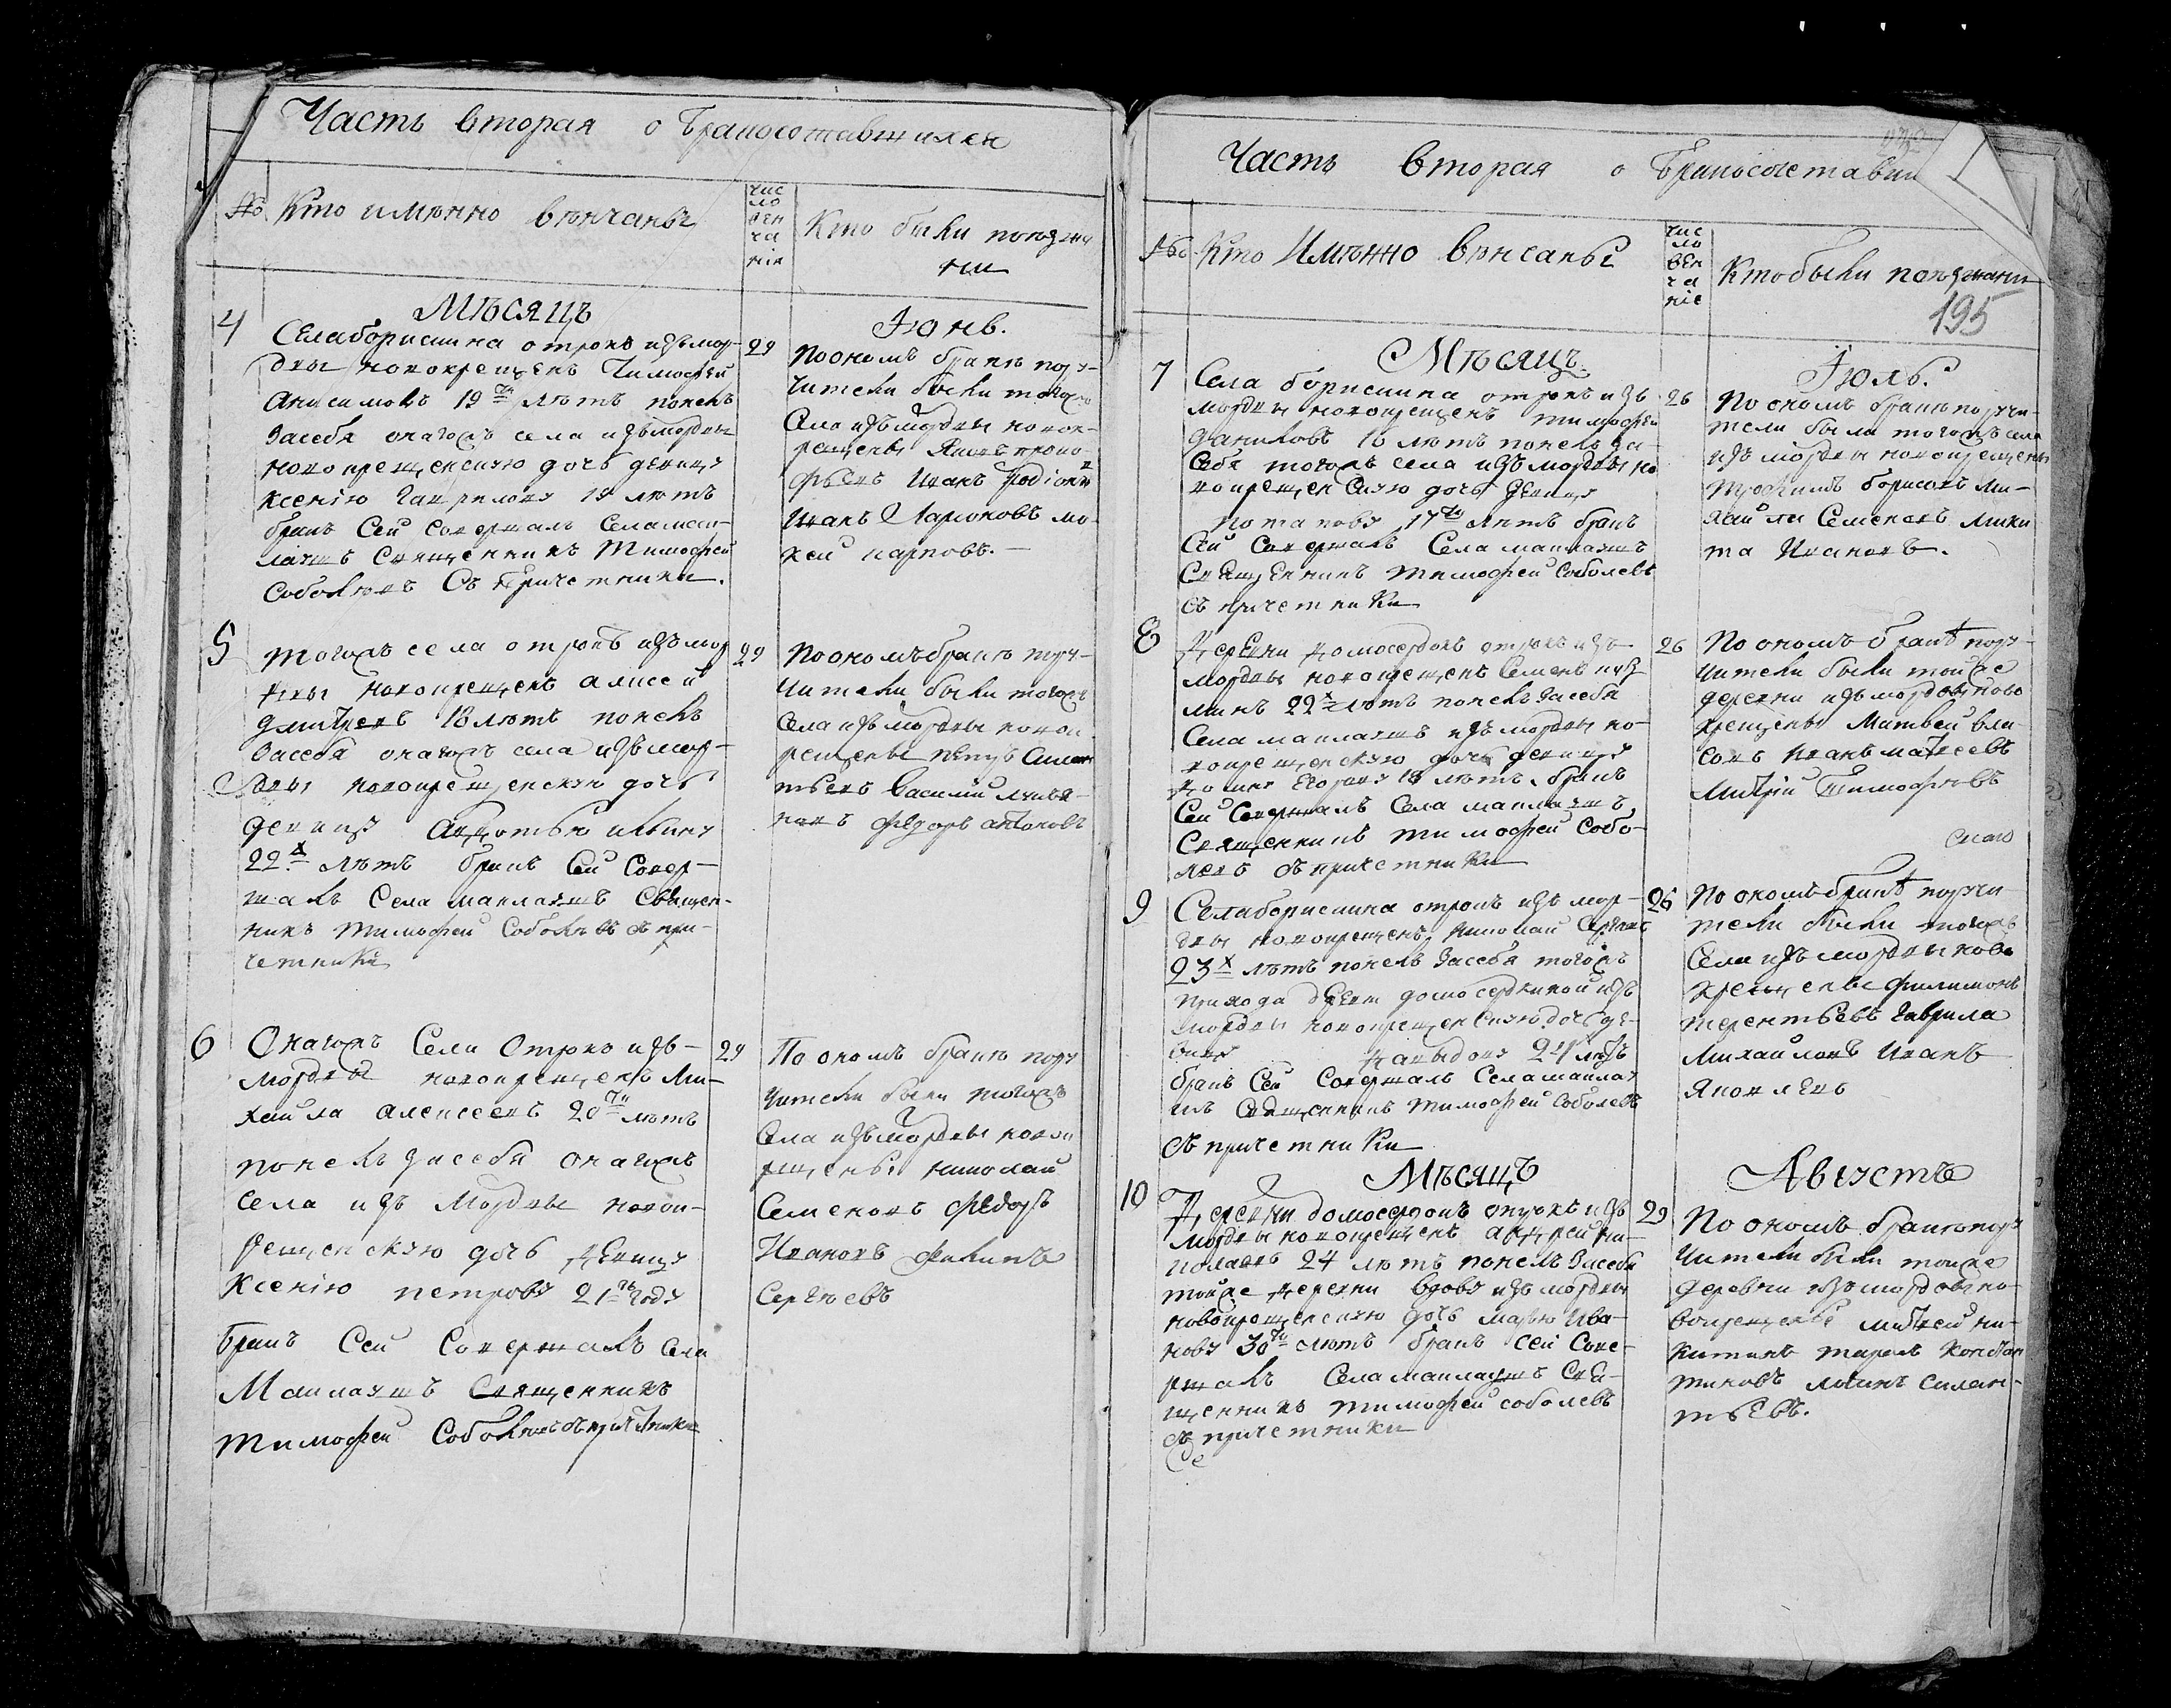 Часть вторая о бракосотавшихся
№ Кто имѣнно вѣнчаны
чис
ло
вен
ча
нія
Кто были поѣзжа
ни
Мѣсяцъ
Іюнь.
4
Села борисшина отрокъ изъ мор-
двы новокрещенъ Тимофей
Анисимовъ 19ти лѣтъ понелъ
засебя онагожъ села изъ мордвы
новокрещенскую дочь девицу
Ксенію Гаврилову 19 лѣтъ
бракъ Сей Совершалъ Села маи-
лаушъ Священникъ Тимофей
Соболѣвъ Съ причетники.
29
По ономъ бракѣ пору-
чители были тогожъ
Села изъ мордвы новок-
рещены Яковъ проко
фьевъ Иванъ Родіоно
Иванъ Ларионовъ мо-
кей карповъ.
5
тогожъ села отрокъ изъ мор
двы новокрещенъ алисей
дмитревъ 18 лѣтъ понелъ
засебя онагожъ села изъ мор-
двы новокрещенскую дочь
девицу Авдотью ильину
22х лѣтъ бракъ Сей Совер-
шалъ Села маилаушъ Священ-
никъ Тимофей Соболѣвъ съ при-
четники
29
По ономъ бракѣ пору-
чители были тогожъ
Села изъ мордвы новок
рещены петръ Силан
тьевъ Василий
Федоръ антоновъ
6
Онагожъ Села Отрокъ изъ-
мордвы новокрещенъ Ми-
хайла алексеевъ 20ти лѣтъ
понелъ засебя онагожъ
села изъ Мордвы новок-
рещенскую дочь Девицу
Ксенію петрову 21го году
бракъ Сей Совершалъ Села
Маилаушъ Священникъ
тимофей Соболѣвъ съ причетники
29
По ономъ бракѣ пору
чители были тогожъ
Села изъ мордвы новок
рещены николай
Семеновъ Федоръ
Ивановъ филипъ
Сергѣевъ
Часть вторая о Бракосочетавши
№ Кто Имѣнно вѣнчаны
чис
ло
вен
ча
ніе
Кто были поѣзжани
195
Мѣсяцъ.
Іюль.
7
Села борисшина отрокъ изъ
мордвы новокрещенъ тимофей
даниловъ лѣтъ понелъ за-
себя тогожъ села изъ мордвы но
вокрещенскую дочь девицу
потапову 17ти лѣтъ бракъ
Сей Совершалъ Села маилаушъ
Священникъ тимофей Соболевъ
съ причетники
26
По ономъ бракѣ поручи-
тели были тогожъ села
изъ мордвы новокрещены
трофимъ борисовъ Ми-
хайла Семеновъ Мики
та Ивановъ.
8
Деревни Домосердокъ отрокъ изъ
мордвы новокрещенъ Семенъ куз
минъ 22х лѣтъ понелъ засебя
Села маилаушъ изъ мордвы но-
вокрещенскую дочь девицу
Егорову 18 лѣтъ. бракъ
Сей Совершалъ Села маилаушъ
Священникъ тимофей Собо-
левъ съ причетники
26
По ономъ бракѣ пору-
чители были тойже
деревни изъ мордвы ново
крещены Матвей вла-
совъ Иванъ матвеевъ
Митрій Тимофѣевъ
9
Села борисшина отрокъ изъ мор-
двы новокрещенъ, николай Сергѣевъ
23х лѣтъ понелъ засебя тогожъ
прихода дрѣвни домосердкиной изъ
мордвы новокрещенскую дочь де-
вицу Давыдову 24 лѣтъ
бракъ Сей Совершалъ Села маилау
шъ Священникъ тимофей Соболевъ
съ причетники
26
По ономъ бракѣ поручи
тели были тогожъ
Села изъ мордвы ново
крещены филимонъ
терентьевъ Гаврила
Михайловъ Иванъ
Яковлевъ
Мѣсяцъ
Августъ
10
Деревни домосердокъ отрокъ изъ
мордвы новокрещенъ андрей ни-
колаевъ 24 лѣтъ понелъ засебя
тойже деревни вдову изъ мордвы
новокрещенскую дочь марью Ива-
нову 30ти лѣтъ бракъ Сей Сове-
ршалъ Села маилаушъ Свя-
щенникъ тимофей соболевъ
съ причетники
Се
29
По ономъ бракѣ пору
чители были тойже
деревни изъ мордвы но-
вокрещены матвей ни-
китинъ тарасъ констан
тиновъ силан-
тьевъ.